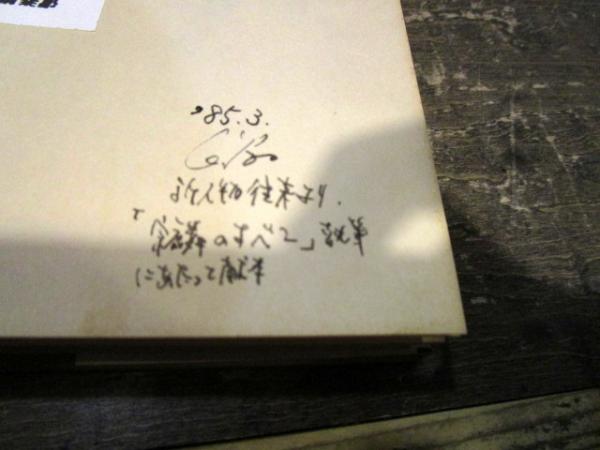 '85.3.
新人物往来より.
「宗麟のすべて」執筆
にあたって献本